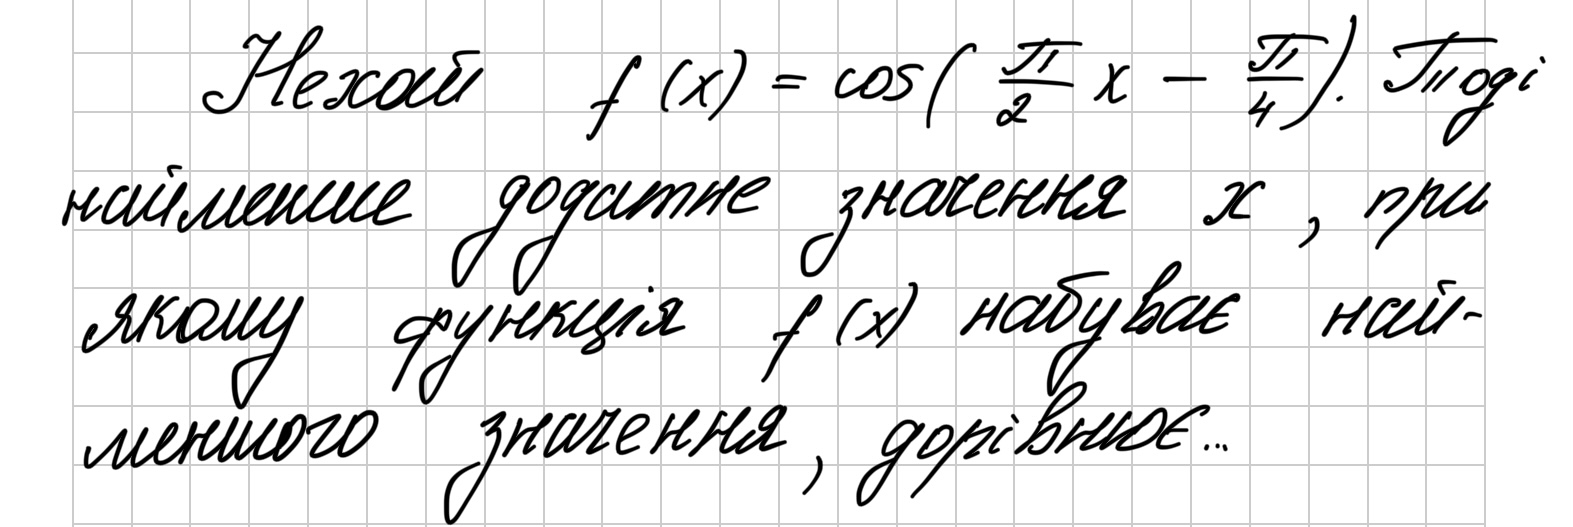 Нехай f(x) = cos(π/2 x − π/4). Тоді
найменше додатне значення x, при
якому функція f(x) набуває най-
меншого значення, дорівнює...